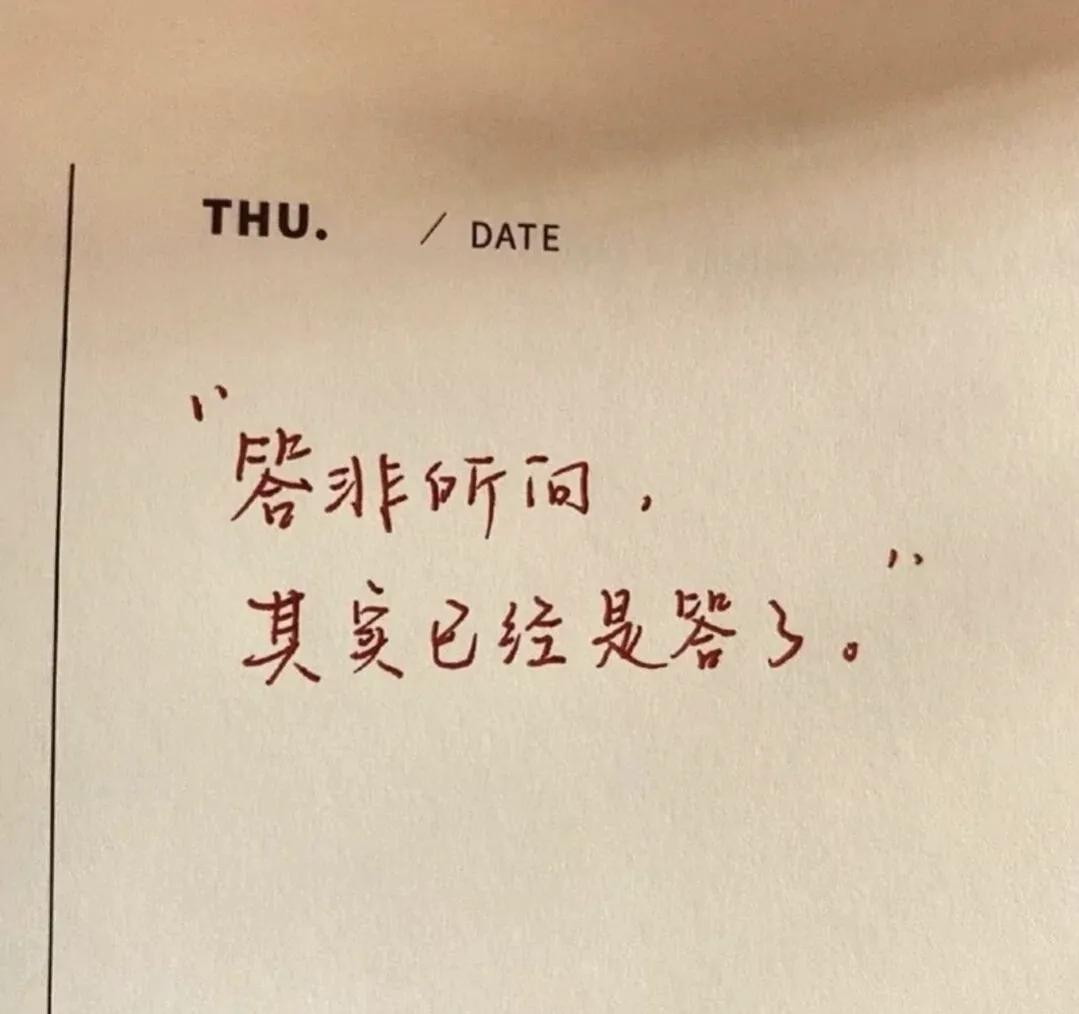 THU. / DATE
“答非所问，
其实已经是答了。”